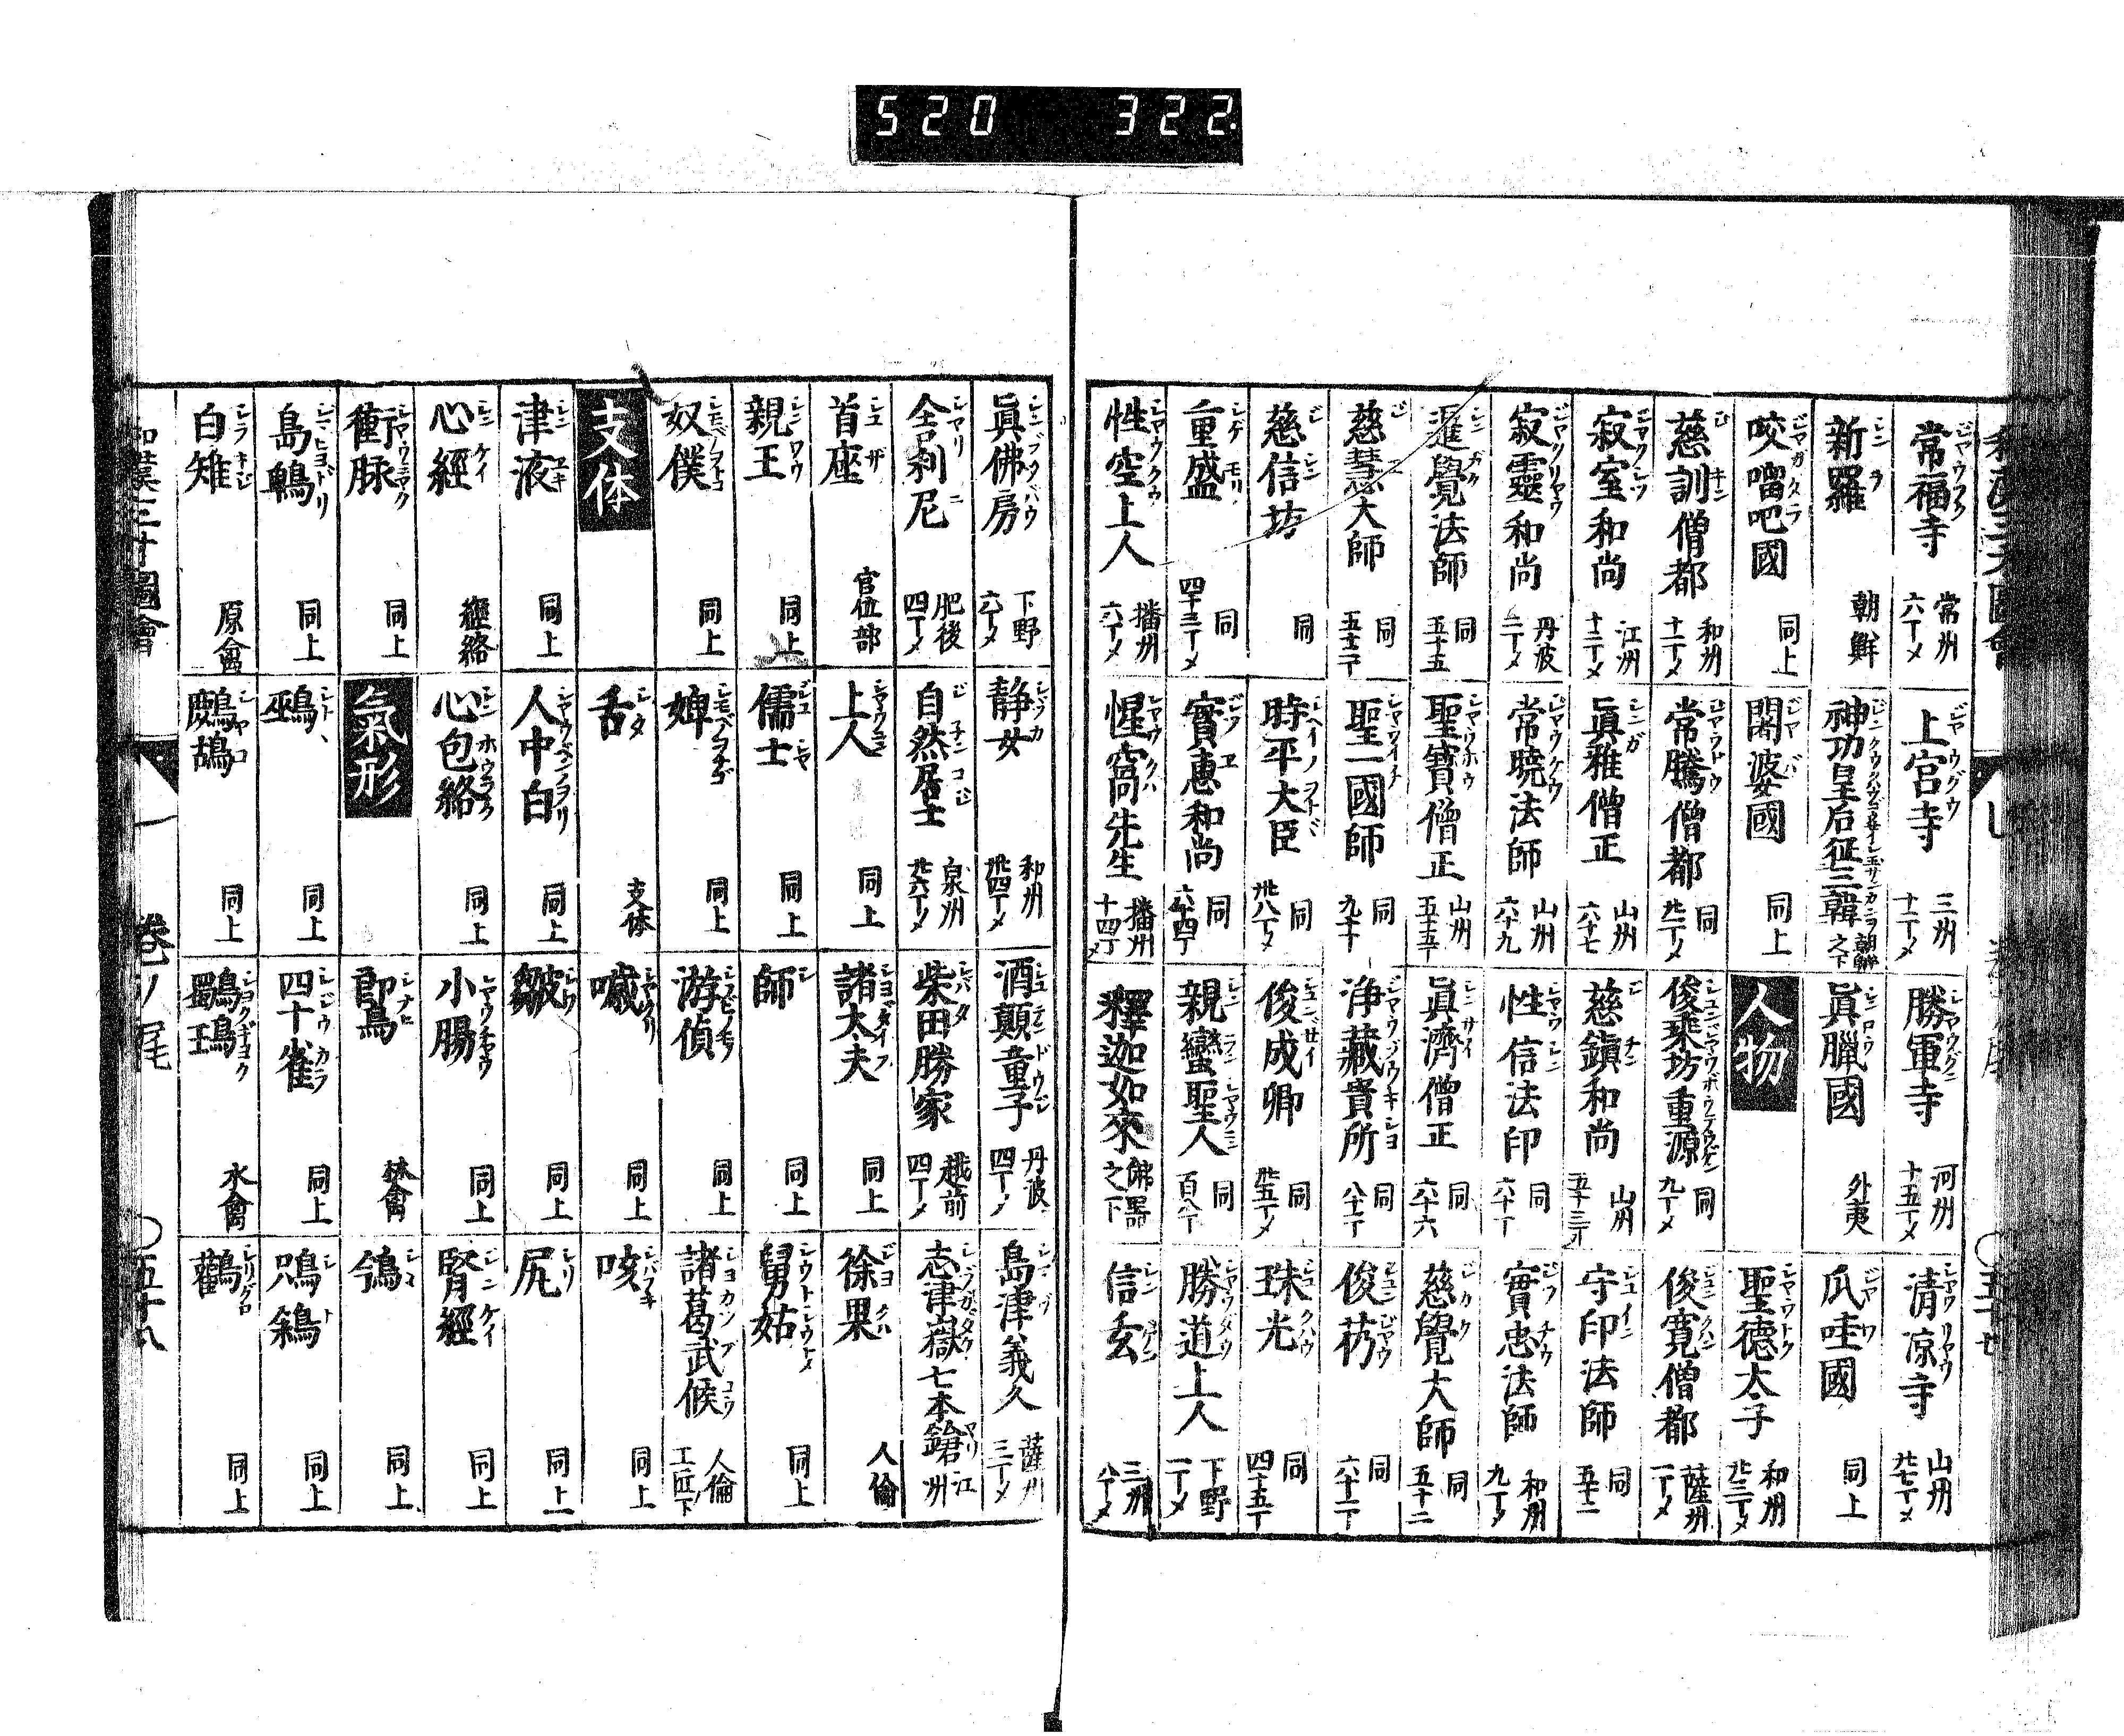 520 322
常福寺 常州 六丁メ 上宮寺 三州 十一丁メ 勝軍寺 河州 十五丁メ 清凉寺 山州
新羅 朝鮮 神功皇后征三韓 朝鮮之下 眞臘國 外夷 瓜哇國 同上
咬𠺕吧國 同上 闍婆國 同上 人物 聖德太子 和州
慈訓僧都 和州 十一丁メ 常騰僧都 同 俊乗坊重源 同 九丁メ 俊寛僧都 薩州 一丁メ
寂室和尚 江州 十二丁メ 眞雅僧正 山州 六十七 慈鎭和尚 山州 守印法師 同
寂靈和尚 丹波 二丁メ 常曉法師 山州 六十九 性信法印 同 六十丁 實忠法師 和州 九丁メ
同 五十五 聖寶僧正 山州 眞濟僧正 同 六十六 慈覺大師 同 五十二
慈慧大師 同 聖一國師 同 九十丁 浄藏貴所 同 八十丁 俊芿 同 六十一丁
慈信坊 同 時平大臣 同 俊成卿 同 珠光 同 四十五丁
重盛 同 四十三丁メ 實惠和尚 同 六十四丁 親鸞聖人 同 百八丁 勝道上人 下野 一丁メ
性空上人 播州 六丁メ 惺窩先生 播州 十四丁メ 釋迦如來 佛器之下 信玄 三州 八丁メ
眞佛房 下野 六丁メ 静女 和州 酒顛童子 丹波 四丁メ 島津義久 薩州 三丁メ
舎利尼 肥後 四丁メ 自然居士 泉州 柴田勝家 越前 四丁メ 志津嶽七本鎗 江州
首座 官位部 上人 同上 諸太夫 同上 徐果 人倫
親王 同上 儒士 同上 師 同上 舅姑 同上
奴僕 同上 婢 同上 游偵 同上 諸葛武候 人倫 工匠下
支体 舌 支体 噦 同上 咳 同上
津液 同上 人中白 同上 皺 同上 尻 同上
心經 經絡 心包絡 同上 小腸 同上 腎經 同上
衝脉 同上 氣形 鴫 林禽 同上
島鵯 同上 鵐 同上 四十雀 同上 同上
白雉 原禽 鷓鴣 同上 水禽 同上
和漢三才圖會 卷ノ尾 五十八